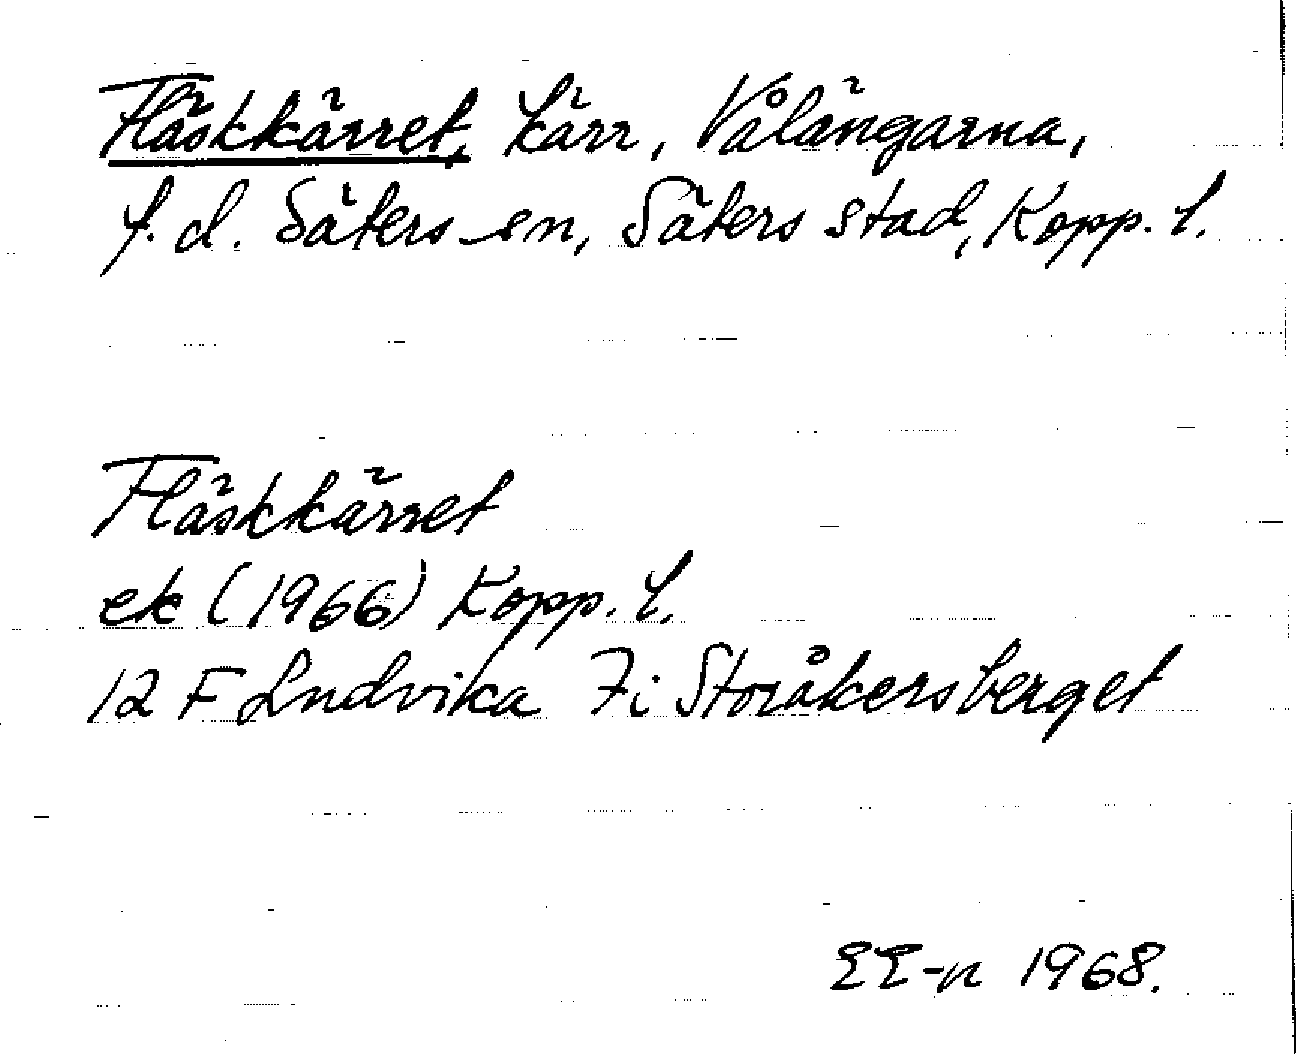 Fläskkärret, kärr, Vålängarna,
f. d. Säters sn, Säters stad, Kopp. l.
Fläskkärret
ek (1966) Kopp. l.
12 F Ludvika 7i Storåkersberget
EE-n 1968.